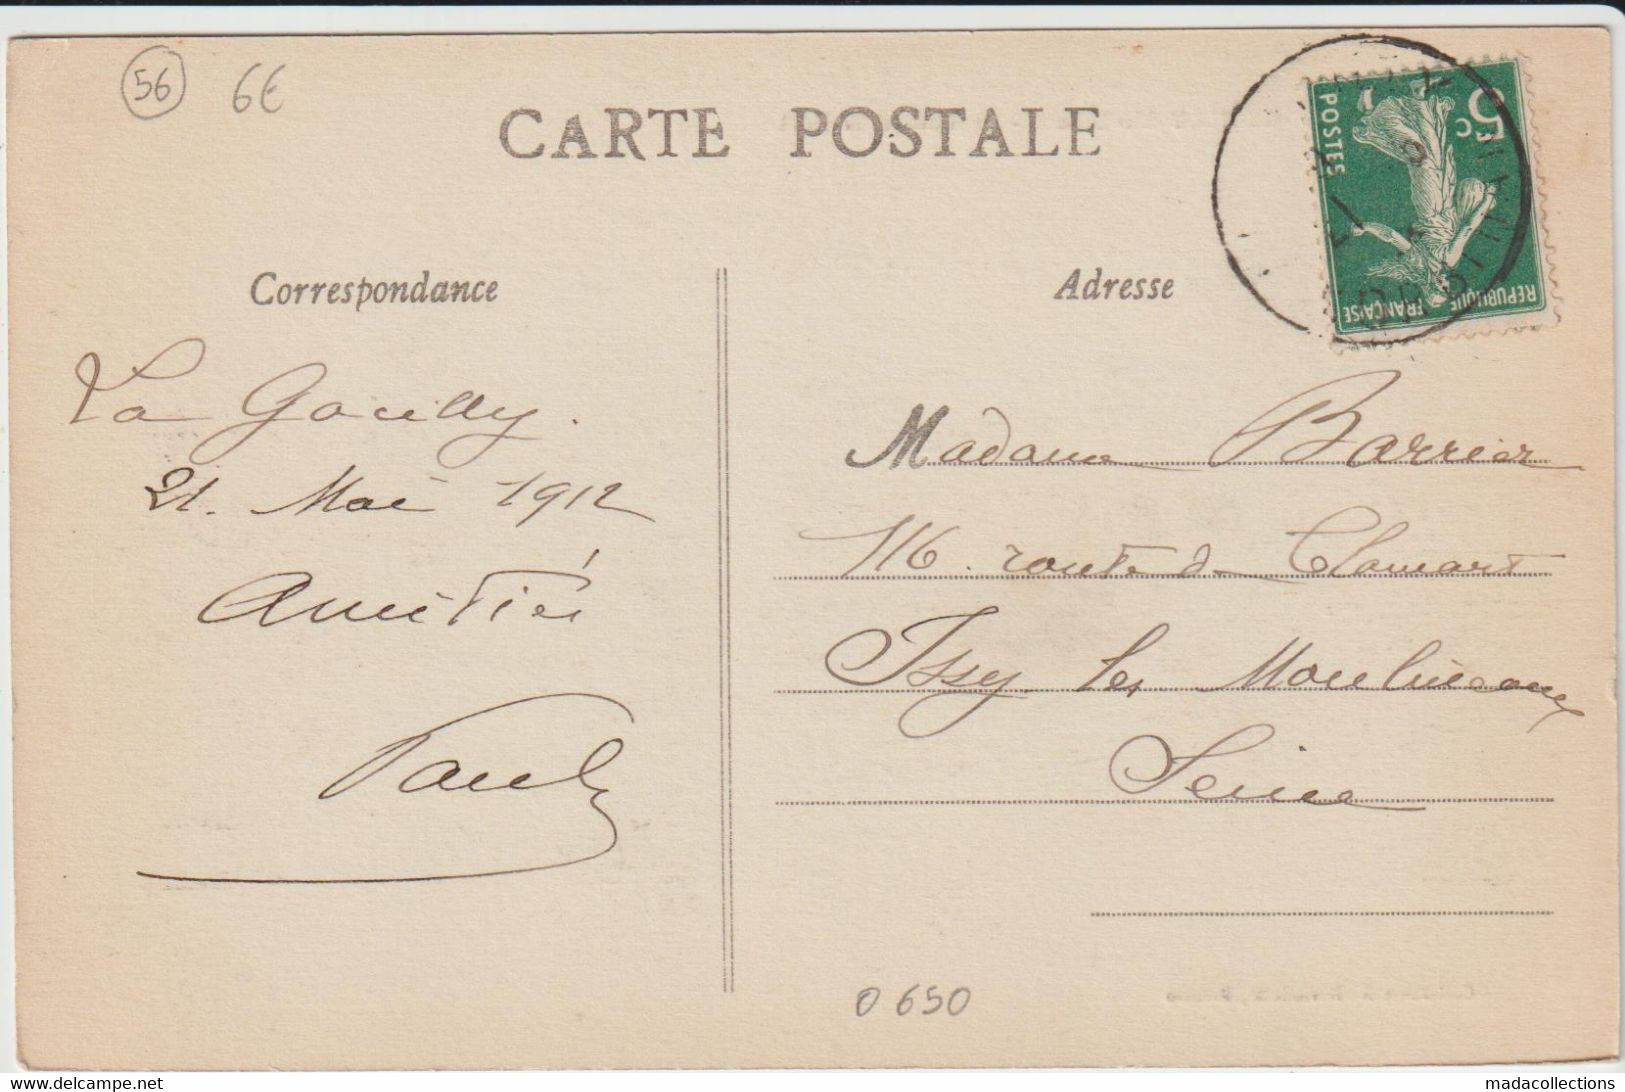 56
6€
CARTE POSTALE
5c
POSTES
REPUBLIQUE FRANÇAISE
Correspondance
La Gacilly.
21. Mai 1912
Amitiés
Adresse
Madame Barrier
116. route de Clamart
Issy les Moulineaux
Seine
0 650
www.delcampe.net
madacollections